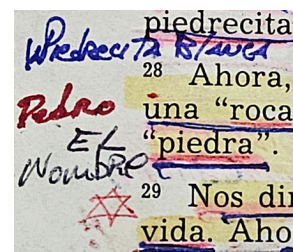 piedrecita
Piedrecita Blanca
28 Ahora,
Pedro
una “roca
El
“piedra”.
Nombre
29 Nos dir
vida. Aho